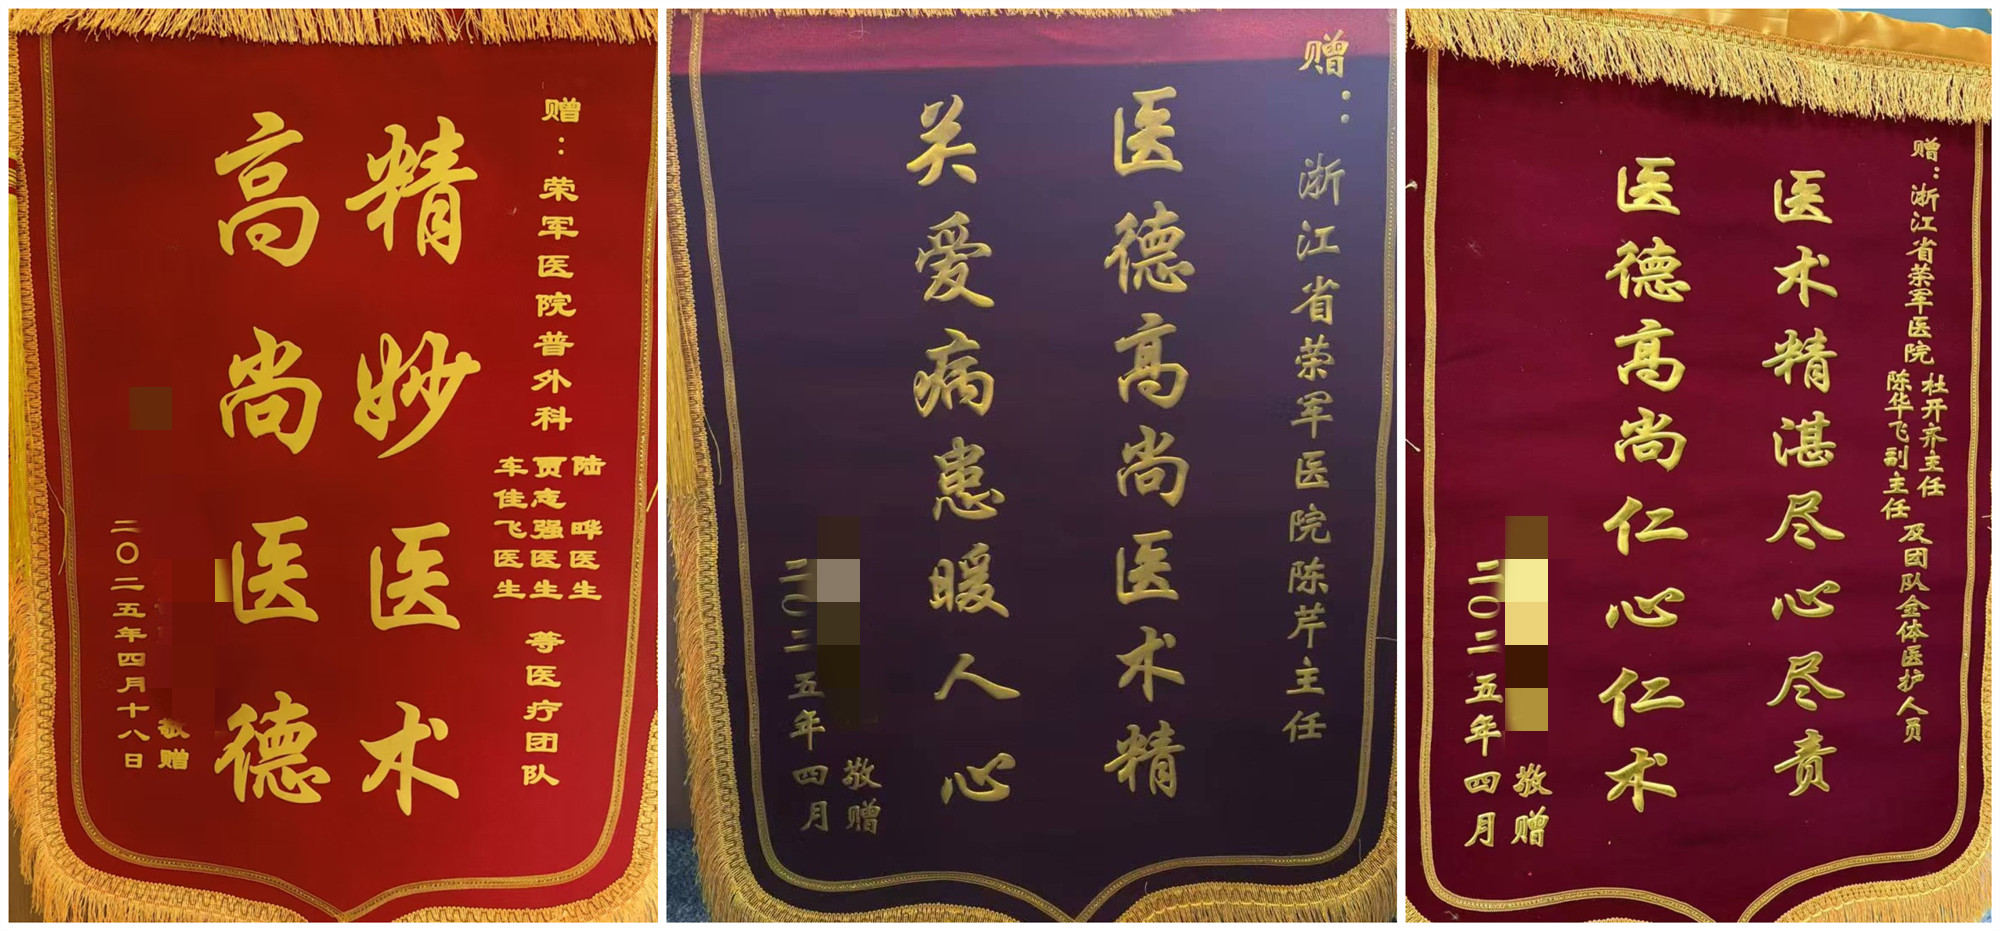 赠：荣军医院普外科
陆晔医生
贾志强医生
车佳飞医生
等医疗团队
精妙医术
高尚医德
敬赠
二〇二五年四月十八日
赠：浙江省荣军医院陈芹主任
医德高尚医术精
关爱病患暖人心
敬赠
二〇二五年四月
赠：浙江省荣军医院
杜开齐主任
陈华飞副主任
及团队全体医护人员
医术精湛尽心尽责
医德高尚仁心仁术
敬赠
二〇二五年四月